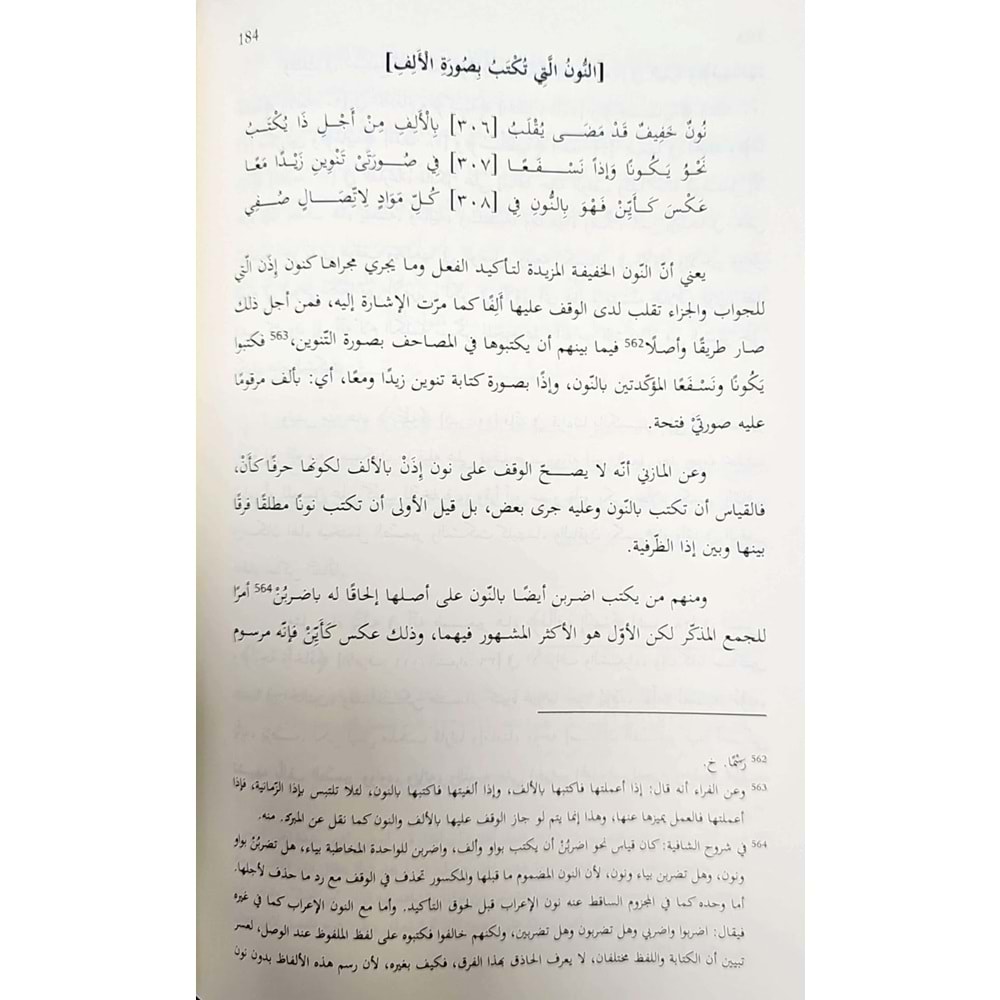 184
[النُّونُ الَّتِي تُكْتَبُ بِصُورَةِ الْأَلِفِ]
نُونٌ خَفِيفٌ قَدْ مَضَى يُقْلَبُ [٣٠٦] بِالْأَلِفِ مِنْ أَجْلِ ذَا يُكْتَبُ
نَحْوُ يَكُونًا وَإِذاً نَسْفَعًا [٣٠٧] فِي صُورَتَيْ تَنْوِينِ زَيْدًا مَعًا
عَكْسَ كَأَيِّنْ فَهْوَ بِالنُّونِ فِي [٣٠٨] كُلِّ مَوَادٍ لِاتِّصَالٍ صُفِي
يعني أنّ النّون الخفيفة المزيدة لتأكيد الفعل وما يجري مجراها كنون إِذَن الّتي
للجواب والجزاء تقلب لدى الوقف عليها أَلِفًا كما مرّت الإشارة إليه، فمن أجل ذلك
صار طريقًا وأصلًا562 فيما بينهم أن يكتبوها في المصاحف بصورة التّنوين،563 فكتبوا
يَكُونًا ونَسْفَعًا المؤكّدتين بالنّون، وإذًا بصورة كتابة تنوين زيدًا ومعًا، أي: بألف مرقومًا
عليه صورتَيْ فتحة.
وعن المازني أنّه لا يصحّ الوقف على نون إِذَنْ بالألف لكونها حرفًا كأَنْ،
فالقياس أن تكتب بالنّون وعليه جرى بعض، بل قيل الأولى أن تكتب نونًا مطلقًا فرقًا
بينها وبين إذا الظّرفية.
ومنهم من يكتب اضربن أيضًا بالنّون على أصلها إلحاقًا له باضربُنْ564 أمرًا
للجمع المذكّر لكن الأوّل هو الأكثر المشهور فيهما، وذلك عكس كَأَيِّنْ فإنّه مرسوم
562 رَسْمًا. خ.
563 وعن الفراء أنه قال: إذا أعملتها فاكتبها بالألف، وإذا ألغيتها فاكتبها بالنون، لئلا تلتبس بإذا الزّمانية، فإذا
أعملتها فالعمل يميزها عنها، وهذا إنما يتم لو جاز الوقف عليها بالألف والنون كما نقل عن المبرد. منه.
564 في شروح الشافية: كان قياس نحو اضربُنْ أن يكتب بواو وألف، واضربن للواحدة المخاطبة بياء، هل تضربُنْ بواو
ونون، وهل تضربن بياء ونون، لأن النون المضموم ما قبلها والمكسور تحذف في الوقف مع رد ما حذف لأجلها.
أما وحده كما في المجزوم الساقط عنه نون الإعراب قبل لحوق التأكيد. وأما مع النون الإعراب كما في غيره
فيقال: اضربوا واضربي وهل تضربون وهل تضربين، ولكنهم خالفوا فكتبوه على لفظ الملفوظ عند الوصل، لعسر
تبيين أن الكتابة واللفظ مختلفان، لا يعرف الحاذق بهذا الفرق، فكيف بغيره، لأن رسم هذه الألفاظ بدون نون